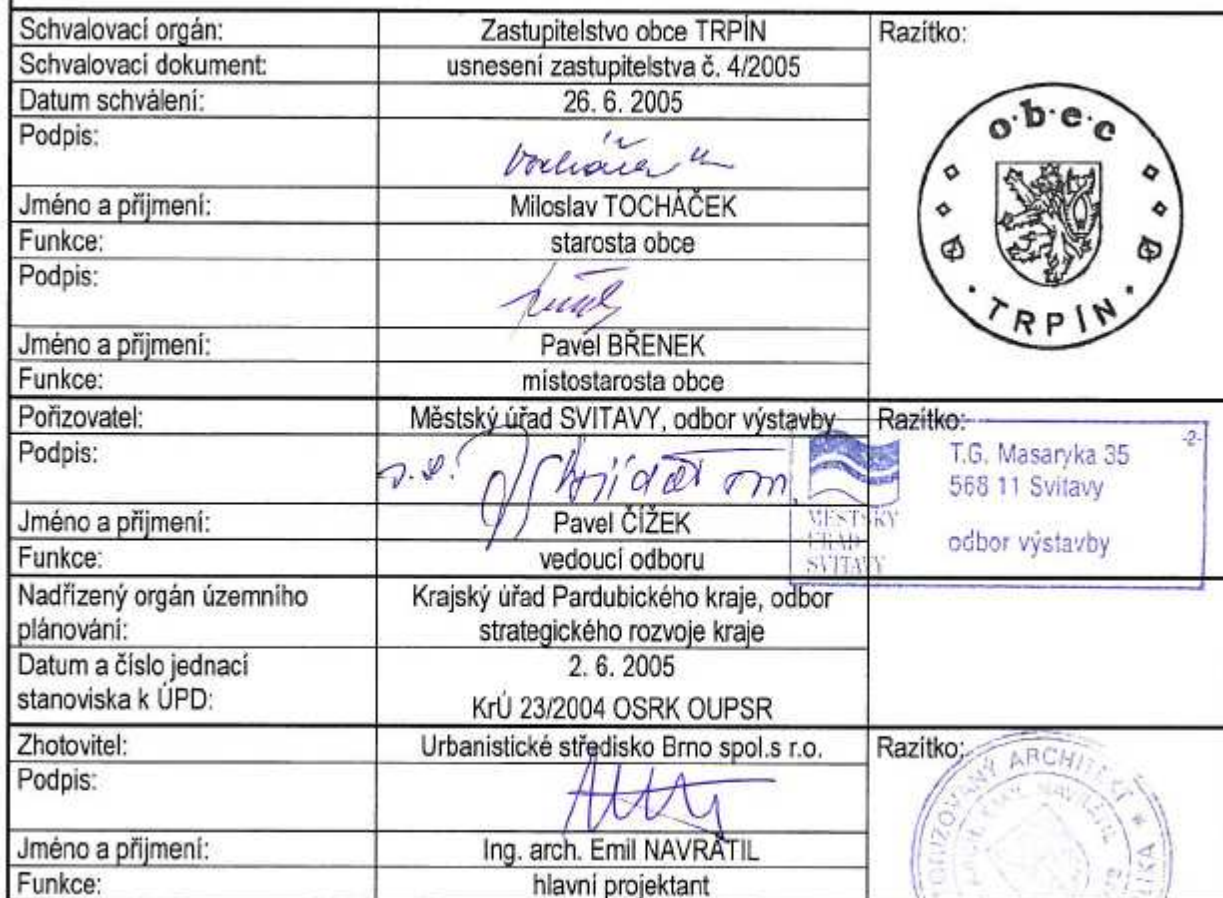 Schvalovací orgán: Zastupitelstvo obce TRPÍN Razítko:
Schvalovací dokument: usnesení zastupitelstva č. 4/2005
Datum schválení: 26. 6. 2005
Podpis:
Jméno a příjmení: Miloslav TOCHÁČEK
Funkce: starosta obce
Podpis:
Jméno a příjmení: Pavel BŘENEK
Funkce: místostarosta obce
o·b·e·c
TRPÍN
Pořizovatel: Městský úřad SVITAVY, odbor výstavby Razítko:
Podpis:
Jméno a příjmení: Pavel ČÍŽEK
Funkce: vedoucí odboru
MĚSTSKÝ
ÚŘAD
SVITAVY
-2-
T.G. Masaryka 35
568 11 Svitavy
odbor výstavby
Nadřízený orgán územního
plánování:
Krajský úřad Pardubického kraje, odbor
strategického rozvoje kraje
Datum a číslo jednací
stanoviska k ÚPD:
2. 6. 2005
KrÚ 23/2004 OSRK OUPSR
Zhotovitel: Urbanistické středisko Brno spol.s r.o. Razítko:
Podpis:
Jméno a příjmení: Ing. arch. Emil NAVRÁTIL
Funkce: hlavní projektant